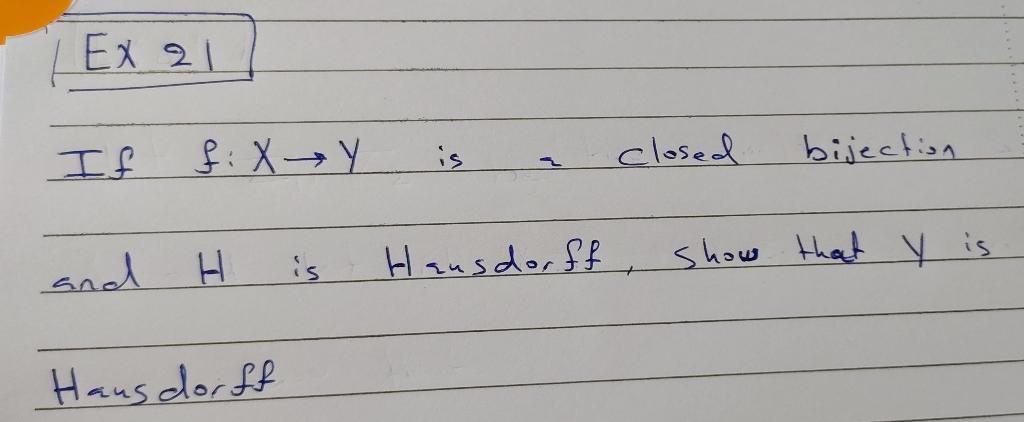 Ex 21
If f: X → Y is a closed bijection
and H is Hausdorff, show that Y is
Hausdorff